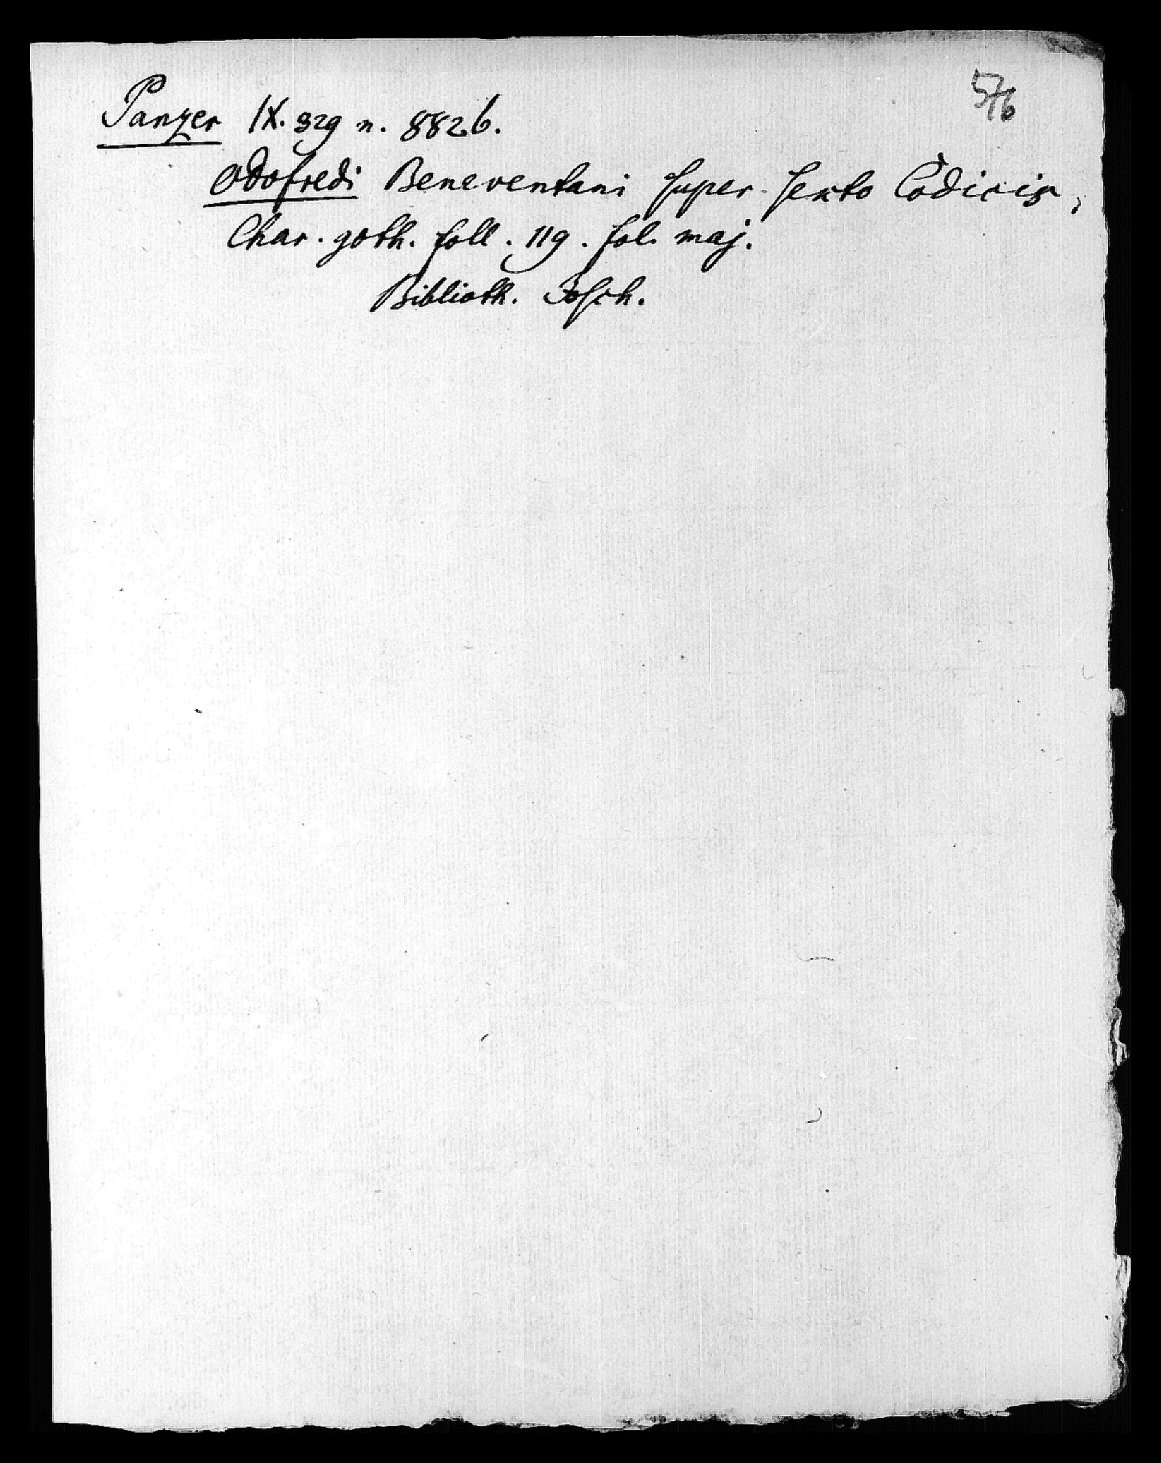 576
Panzer IX. 329 n. 8826.
Odofredi Beneventani super sexto Codicis,
Char. goth. foll. 119. fol. maj.
Biblioth. Bosch.